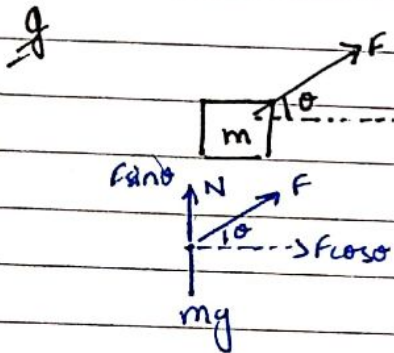 g
F
θ
m
Fsinθ N F
θ
Fcosθ
mg